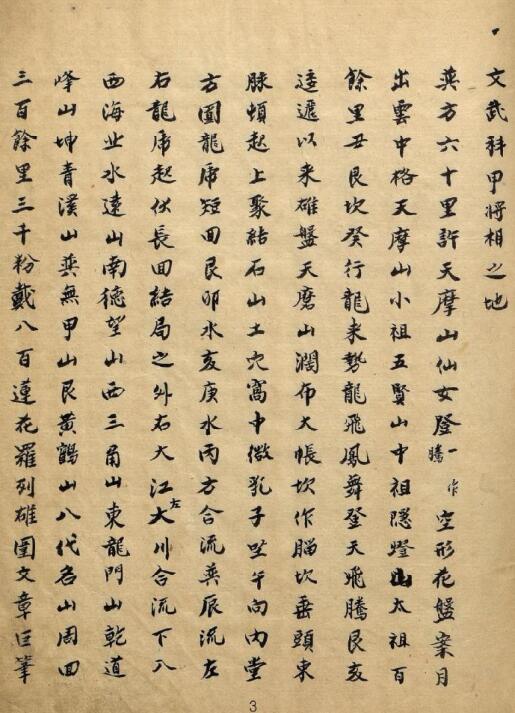 文武科甲將相之地
巽方六十里許天摩山仙女登一作騰空形花盤案月
出雲中格天摩山小祖五賢山中祖隱燈山太祖百
餘里丑艮坎癸行龍来勢龍飛鳳舞登天飛騰艮亥
逶遞以来雄盤天磨山濶布大帳坎作腦坎垂頭東
脉頓起上聚結石山土穴窩中微乳子坐午向内堂
方圓龍虎短回艮卯水亥庚水丙方合流巽辰流左
右龍虎起伏長回結局之外右大江左大川合流下入
西海业水遠山南德望山西三角山東龍門山乾道
峰山坤青溪山巽無甲山艮黄鶴山八代名山周回
三百餘里三千粉戴八百蓮花羅列雄圍文章巨筆
3